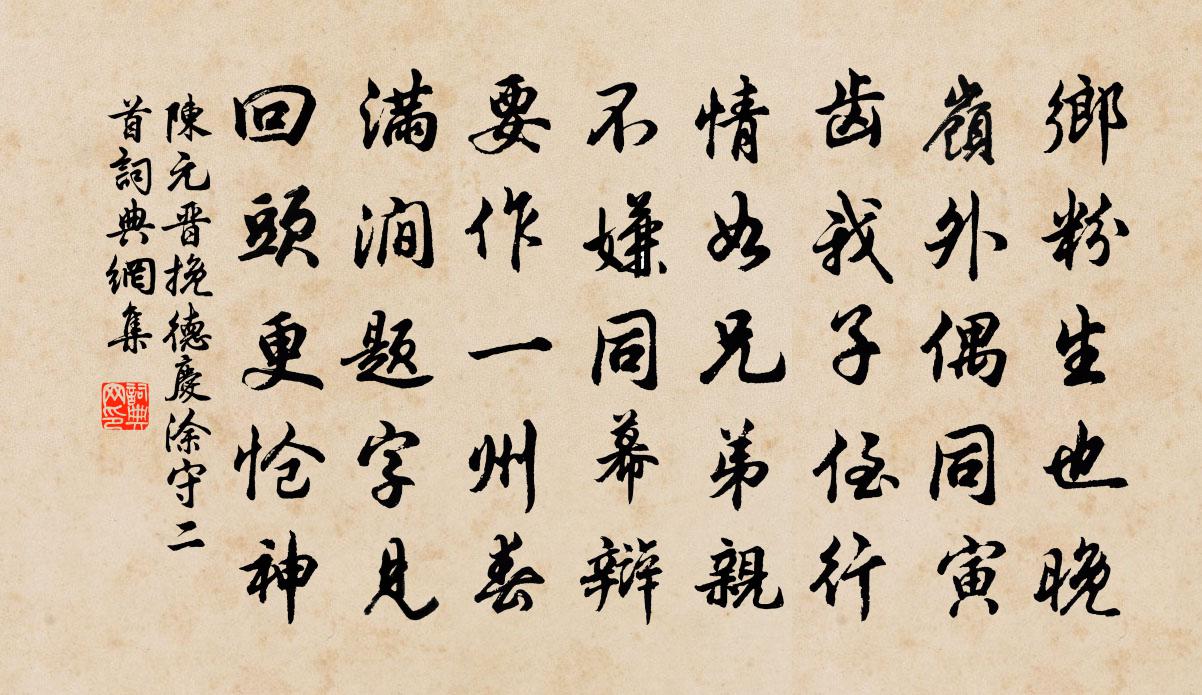 鄉粉生也晚
嶺外偶同寅
齿我子侄行
情如兄弟親
不嫌同幕辯
要作一州春
滿澗題字見
回頭更愴神
陳元晋挽德慶涂守二
首詞典網集
詞典網印